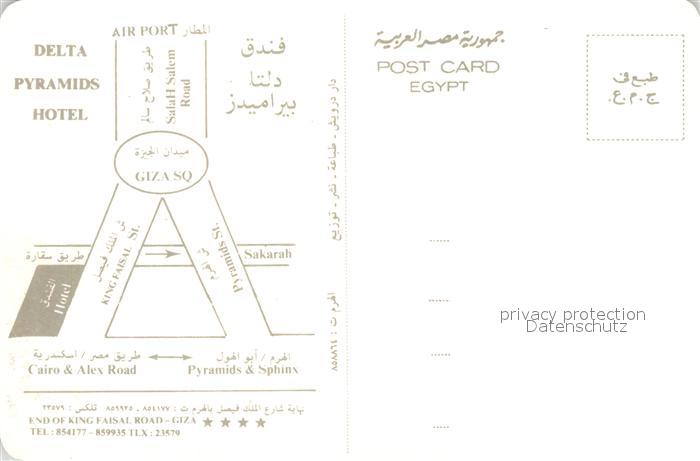 DELTA
PYRAMIDS
HOTEL
AIR PORT المطار
طريق صلاح سالم
SalaH Salem
Road
فندق
دلتا
بيراميدز
ميدان الجيزة
GIZA SQ
ش الملك فيصل
KING FAISAL St.
ش الهرم
Pyramids St.
طريق سقارة
Sakarah
الفندق
Hotel
طريق مصر / اسكندرية
Cairo & Alex Road
الهرم / أبو الهول
Pyramids & Sphinx
نهاية شارع الملك فيصل بالهرم ت : ٨٥٤١٧٧ - ٨٥٩٩٣٥ تلكس : ٢٣٥٧٩
END OF KING FAISAL ROAD – GIZA ★ ★ ★ ★
TEL : 854177 – 859935 TLX : 23579
دار درويش - طباعة - نشر - توزيع
الهرم ت : ٨٥٨٨٦٤
جمهورية مصر العربية
POST CARD
EGYPT
طبع فى
ج.م.ع.
privacy protection
Datenschutz